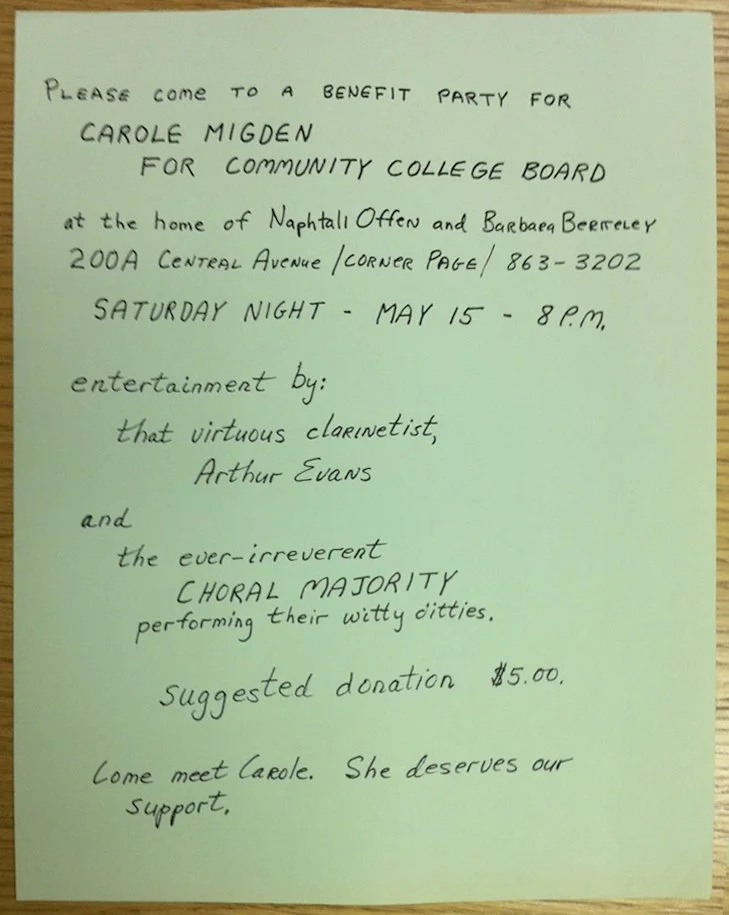 PLEASE COME TO A BENEFIT PARTY FOR
CAROLE MIGDEN
FOR COMMUNITY COLLEGE BOARD
at the home of Naphtali Offen and Barbara Berkeley
200A Central Avenue /CORNER PAGE/ 863-3202
SATURDAY NIGHT - MAY 15 - 8 P.M.
entertainment by:
that virtuous clarinetist,
Arthur Evans
and
the ever-irreverent
CHORAL MAJORITY
performing their witty ditties.
suggested donation $5.00.
Come meet Carole. She deserves our
support.